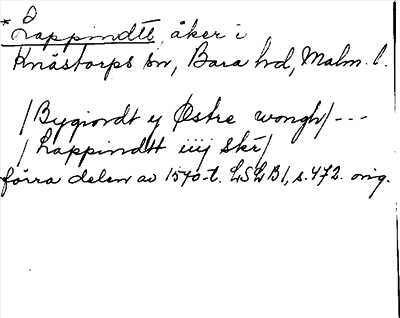 * Lappindtt, åker i
Knästorps sn, Bara hd, Malm. l.
/Bygiordt y Østre wongh/ ---
/Lappindtt iiij skr/
förra delen av 1540-t. LSLB1, s. 472. orig.